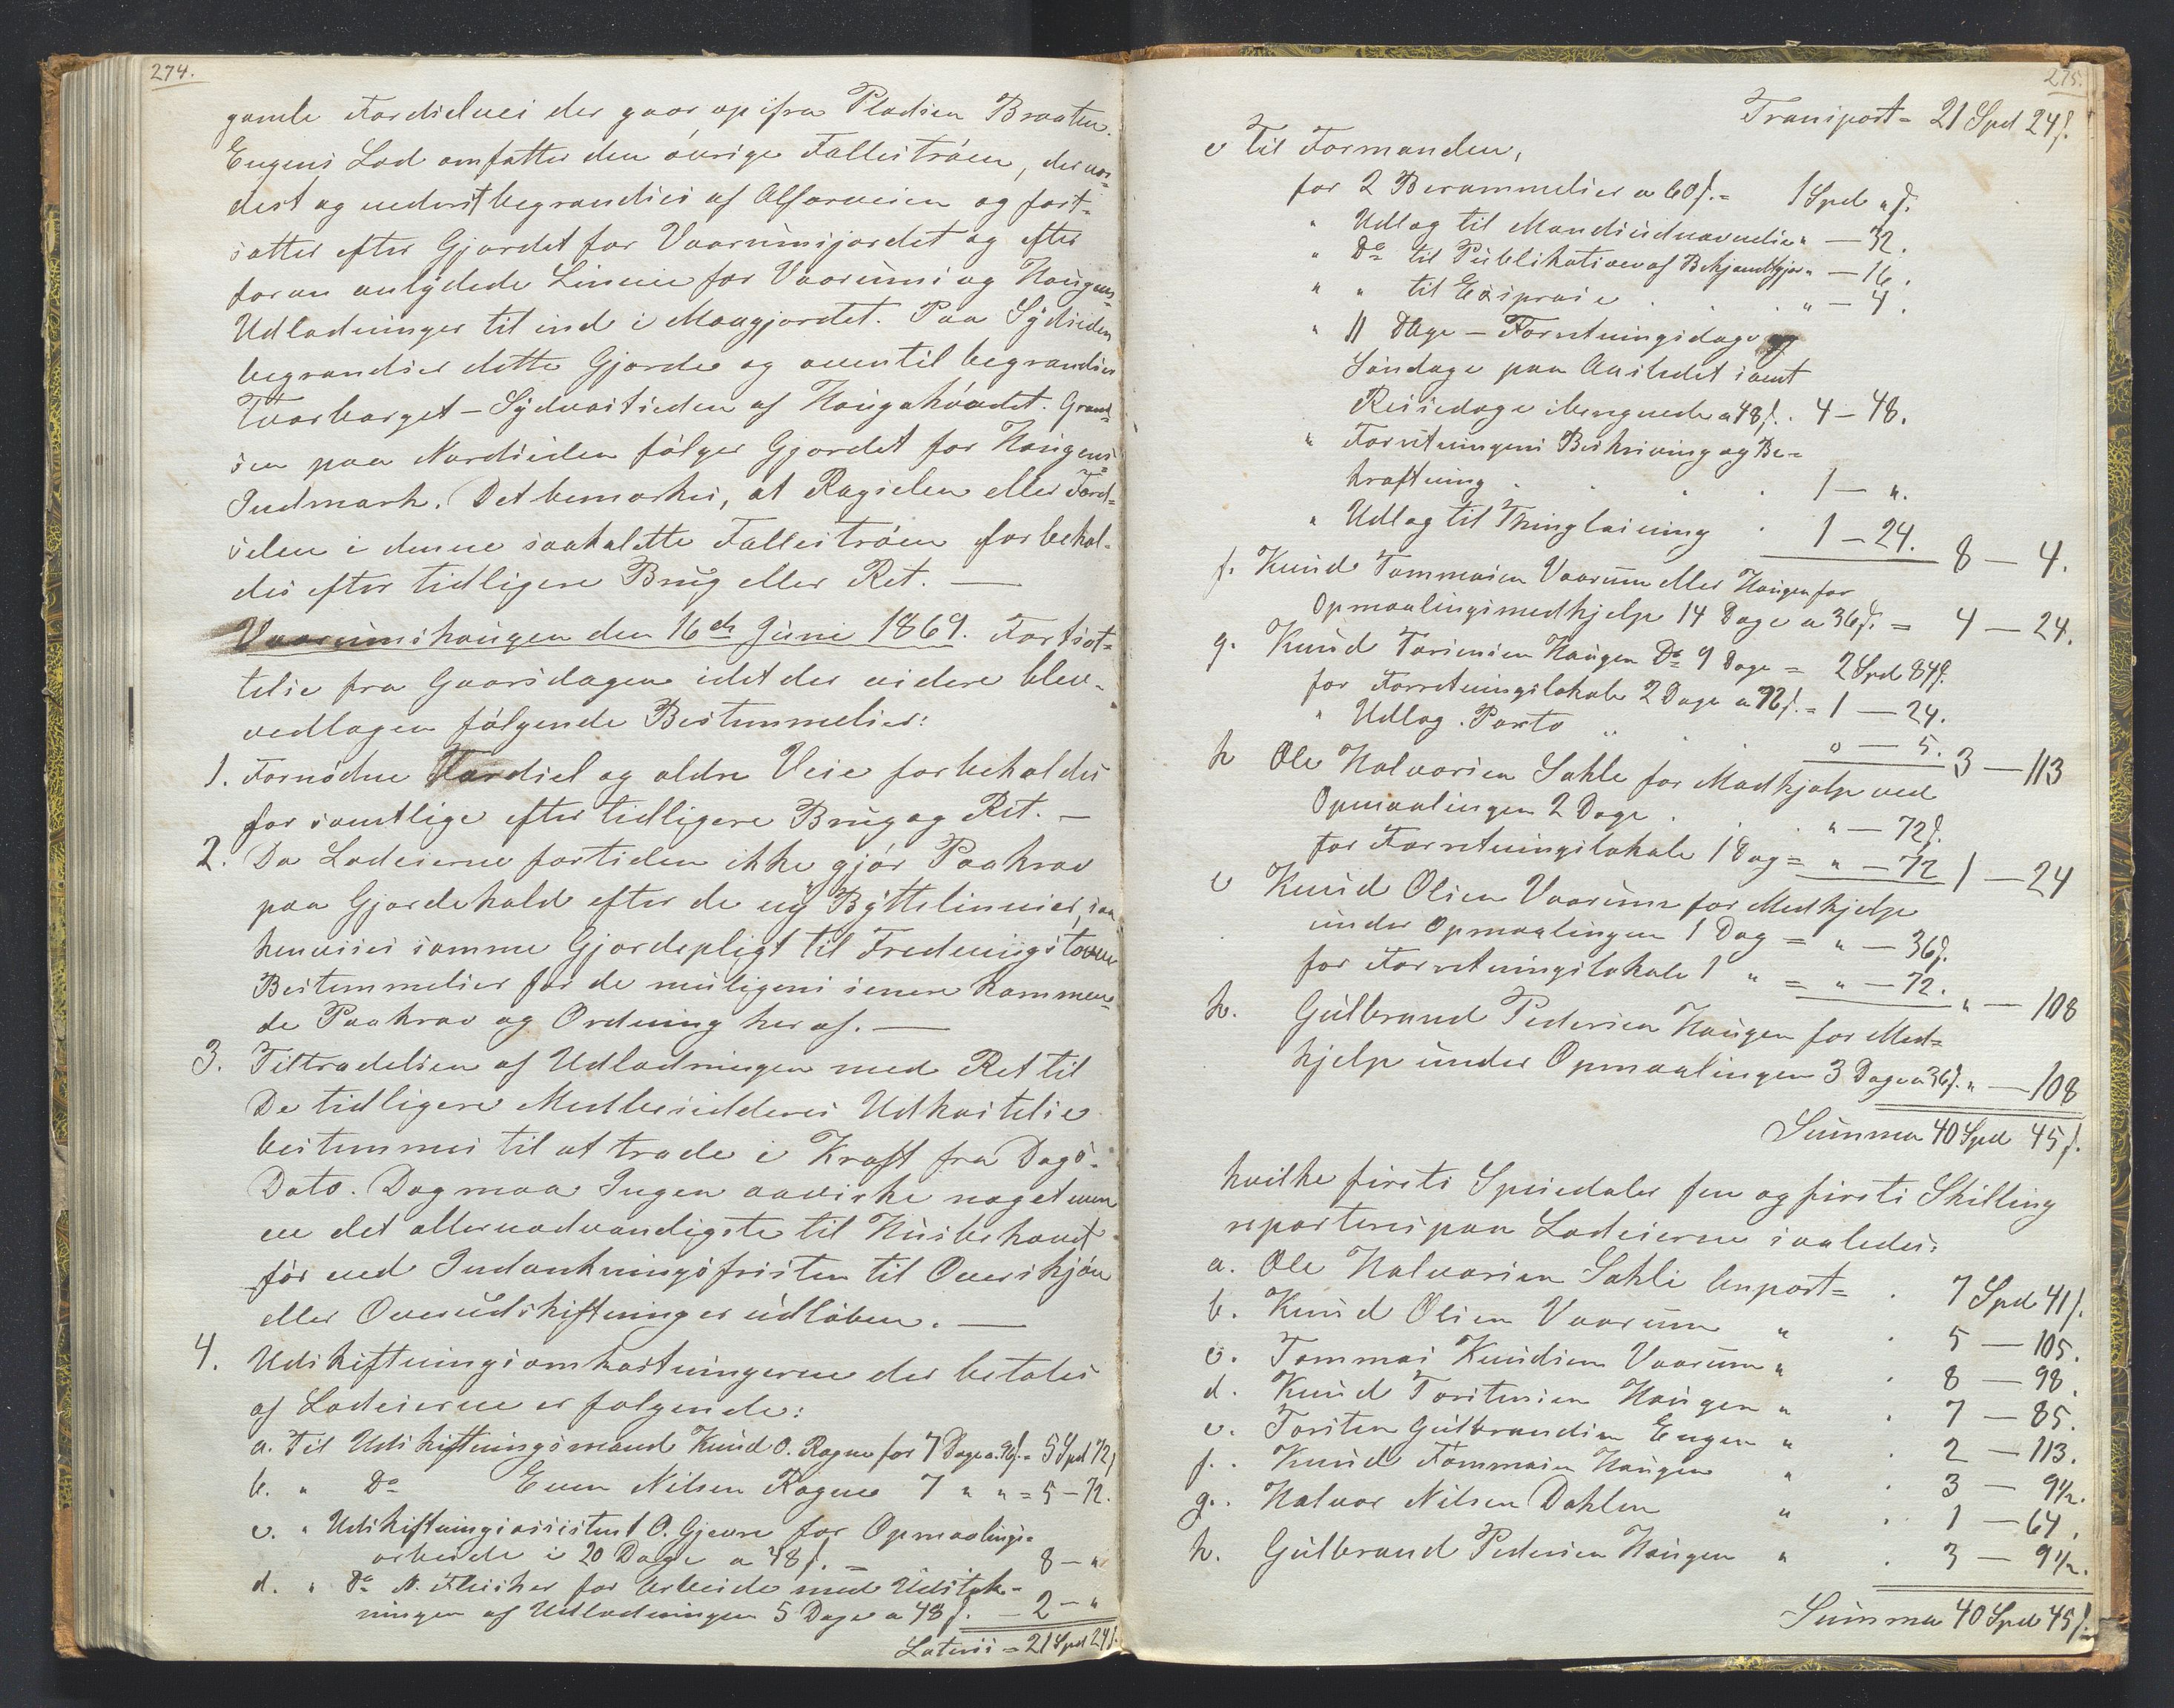 274.
gamle Færdselvei der gaar op ifra Pladsen Braaten.
Engens Lod omfatter den øvrige Fallestrøen, der ves=
dest og nederst begrændses af Alfarveien og fort=
sætter efter Gjærdet for Vaarumsjordet og efter
foran antydede Linnie for Vaarums og Haugens
Udlodninger til ind i Maagjordet. Paa Sydsiden
begrændses dette Gjærde og oventil begrændser
Tværberget - Sydvestsiden af Haugahövdet. Grænd=
sen paa Nordsiden følger Gjærdet for Haugens
Indmark. Det bemærkes, at Rægselen eller Færd=
selen i denne saakaldte Fallestrøen forbehol=
des efter tidligere Brug eller Ret. —
Vaarumshaugen den 16de Juni 1869. Fortsæt=
telse fra Gaarsdagen idet der videre blev
vedtagen følgende Bestemmelser:
1. Fornødne Færdsel og ældre Veie forbeholdes
for samtlige efter tidligere Brug og Ret. —
2. Da Lodeierne fortiden ikke gjør Paakrav
paa Gjærdehold efter de ny Byttelinnier, saa
henvises samme Gjærdepligt til Fredningslovens
Bestemmelser for de muligens senere kommen=
de Paakrav og Ordning heraf. —
3. Tiltrædelsen af Udlodningen med Ret til
De tidligere Medbesidderes Udkastelse
bestemmes til at træde i Kraft fra Dags
Dato. Dog maa Ingen aavirke noget uden
en det allernødvændigste til Husbehovet
før end Indankningsfristen til Overskjøn
eller Overudskiftning er udløben. —
4. Udskiftningsomkostningerne der betales
af Lodeierne er følgende:
a. Til Udskiftningsmand Knud O. Ragne for 7 Dage a 96 ſ. = 5 Spd 72 ſ
b. " Do Even Nilsen Ragne 7 " " = 5 - 72.
c. " Udskiftningsassistent O. Gjevre for Opmaalings=
arbeide i 20 Dage a 48 ſ. = 8 - "
d. " Do N. Fleisher for Arbeide med Udstik=
ningen af Udlodningen 5 Dage a 48 ſ. - 2 - "
Lateris = 21 Spd 24 ſ.
275.
Transport = 21 Spd 24 ſ.
e Til Formanden,
for 2 Berammelser a 60 ſ. = 1 Spd " ſ.
" Udlæg til Mandsudnævnelse " - 32.
" Do til Publikationen af Bekjendtgjør " - 16.
" " til Exspraie . . " - 4.
" 11 Dage - Forretningsdage og
Søndage paa Aastedet samt
Reisedage iberegnede a 48 ſ. . 4 - 48.
" Forretningens Beskrivning og Be=
kræftning . . . . 1 - ".
" Udlæg til Thinglæsning . 1 - 24. 8 - 4.
f. Knud Tommasen Vaarum eller Haugen for
Opmaalingsmedhjelp 14 Dage a 36 ſ. = 4 - 24.
g. Knud Torsensen Haugen Do 9 Dage = 2 Spd 84 ſ.
for Forretningslokale 2 Dage a 72 ſ. = 1 - 24.
" Udlæg. Porto " . . 0 - 5. 3 - 113
h Ole Halvorsen Sahle for Medhjælp ved
Opmaalingen 2 Dage . . " - 72 ſ.
for Forretningslokale 1 Dag = " - 72 1 - 24
i Knud Olsen Vaarum for Medhjelp
under Opmaalingen 1 Dag = " - 36 ſ.
for Forretningslokale 1 " = " - 72. " - 108
k. Gulbrand Pedersen Haugen for Med=
hjelp under Opmaalingen 3 Dage a 36 ſ. " - 108
Summa 40 Spd 45 ſ.
hvilke firsti Speciedaler fem og firsti Skilling
reparteres paa Lodeierne saaledes:
a. Ole Halvorsen Sahli Anpart = . 7 Spd 41 ſ.
b. Knud Olsen Vaarum " . 5 - 105.
c. Tommas Knudsen Vaarum " . 8 - 98.
d. Knud Torstensen Haugen " . 7 - 85.
e. Torsten Gulbrandsen Engen " . 2 - 113.
f. . Knud Tommasen Haugen " . 3 - 9½.
g. . Halvor Nilsen Dahlen " . 1 - 64.
h. Gulbrand Pedersen Haugen " . 3 - 9½.
Summa 40 Spd 45 ſ.